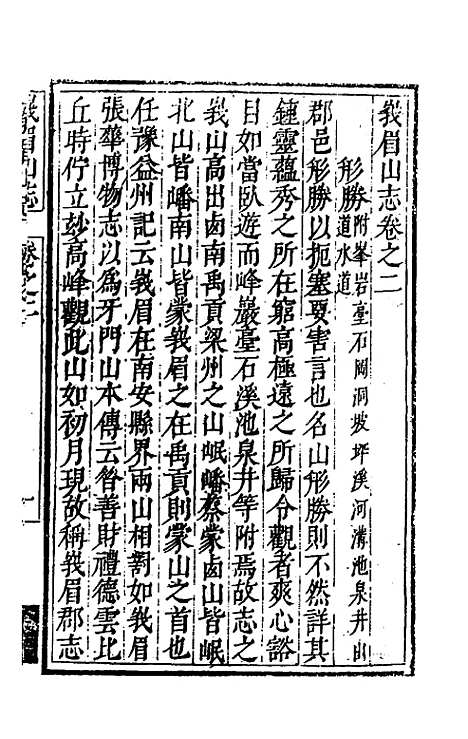 峩眉山志卷之二
形勝附峯岩臺石岡洞坡坪溪河溝池泉井山道水道
郡邑形勝以扼塞要害言也名山形勝則不然詳其
鍾靈蘊秀之所在窮高極遠之所歸令觀者爽心豁
目如當臥遊而峰巖臺石溪池泉井等附焉故志之
峩山高出鹵南禹貢梁州之山岷嶓蔡蒙鹵山皆岷
北山皆嶓南山皆蒙峩眉之在禹貢則蒙山之首也
任豫益州記云峩眉在南安縣界兩山相對如峩眉
張華博物志以為牙門山本傳云昝善財禮德雲比
丘時佇立玅高峰觀此山如初月現故稱峩眉郡志
峩眉山志
卷之二
一